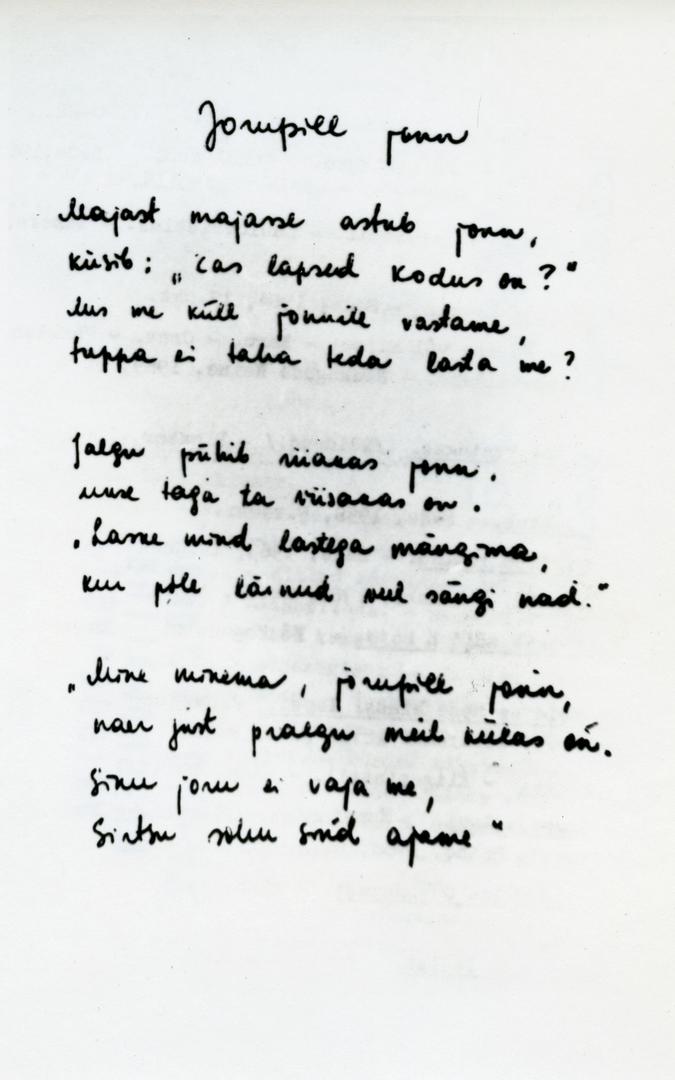 Jorupill jonn
Majast majasse astub jonn,
küsib: „Kas lapsed kodus on?"
Mis me küll jonnile vastame,
tuppa ei taha teda lasta me?
Jalgu pühib jonn.
ukse taga ta viisakas on.
„Laske mind lastega mängima,
kui pole läinud veel sängi nad."
„Mine minema, jorupill jonn,
naer just praegu meil külas on.
Sinu joru ei vaja me,
Sirtsu sohu sind ajame"